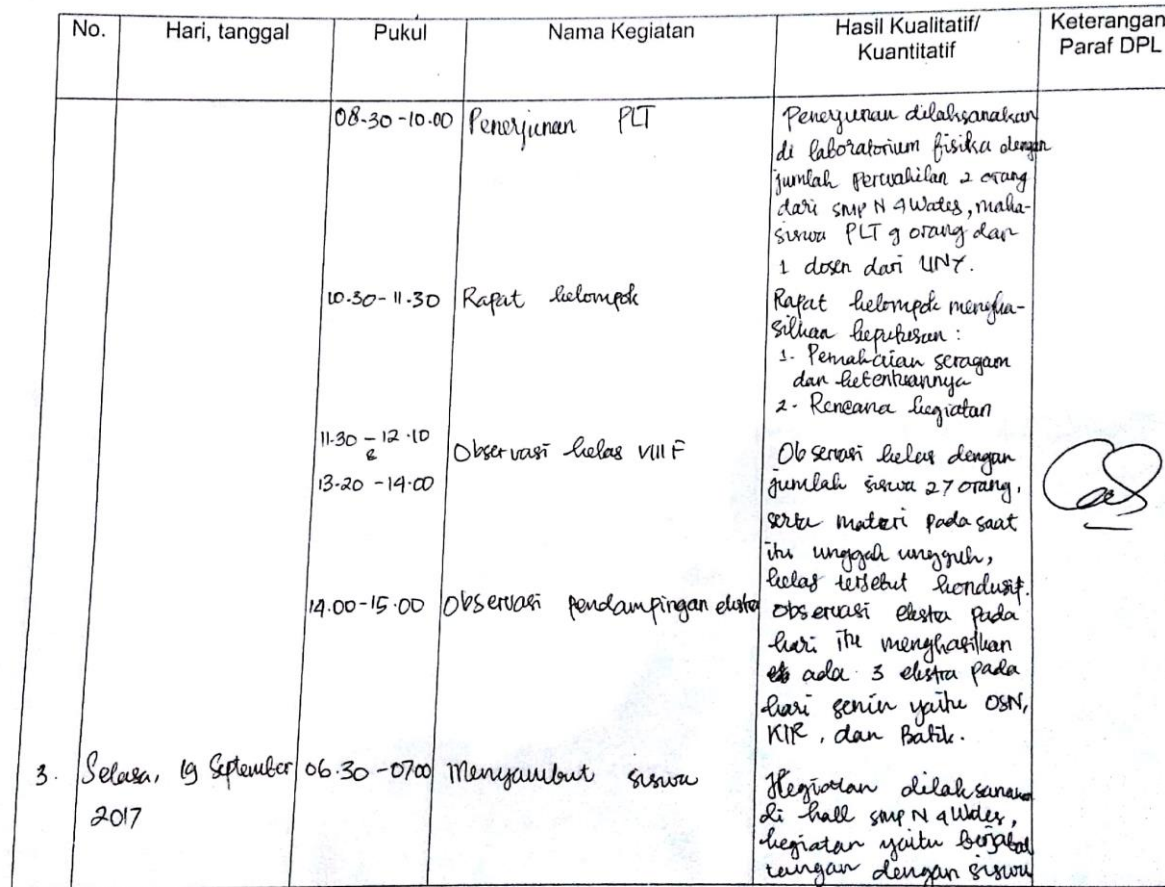 No.
Hari, tanggal
Pukul
Nama Kegiatan
Hasil Kualitatif/
Kuantitatif
Keterangan
Paraf DPL
08.30-10.00
Penerjunan PLT
Penerjunan dilaksanakan
di laboratorium fisika dengan
jumlah perwakilan 2 orang
dari SMP N 4 Wates, maha-
siswa PLT 9 orang dan
1 dosen dari UNY.
10.30-11.30
Rapat kelompok
Rapat kelompok mengha-
silkan keputusan :
1. Pemakaian seragam
dan ketentuannya
2. Rencana kegiatan
11.30 - 12.10
&
13.20 - 14.00
Observasi kelas VIII F
Observasi kelas dengan
jumlah siswa 27 orang,
serta materi pada saat
itu unggah ungguh,
kelas tersebut kondusif.
14.00-15.00
Observasi pendampingan ekstra
Observasi ekstra pada
hari itu menghasilkan
ada 3 ekstra pada
hari senin yaitu OSN,
KIR, dan Batik.
3.
Selasa, 19 September
2017
06.30-0700
Menyambut siswa
Kegiatan dilaksanakan
di hall SMP N 4 Wates,
kegiatan yaitu berjabat
tangan dengan siswa